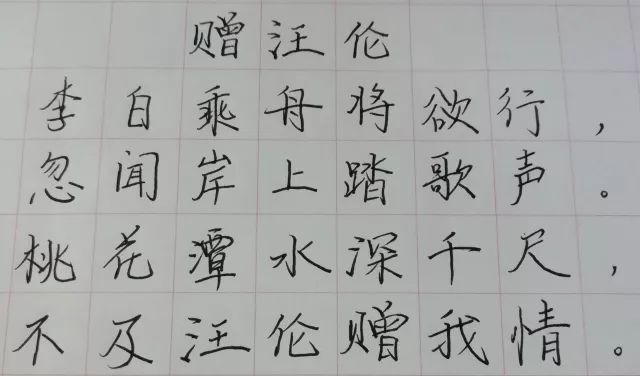 赠汪伦
李白乘舟将欲行，
忽闻岸上踏歌声。
桃花潭水深千尺，
不及汪伦赠我情。